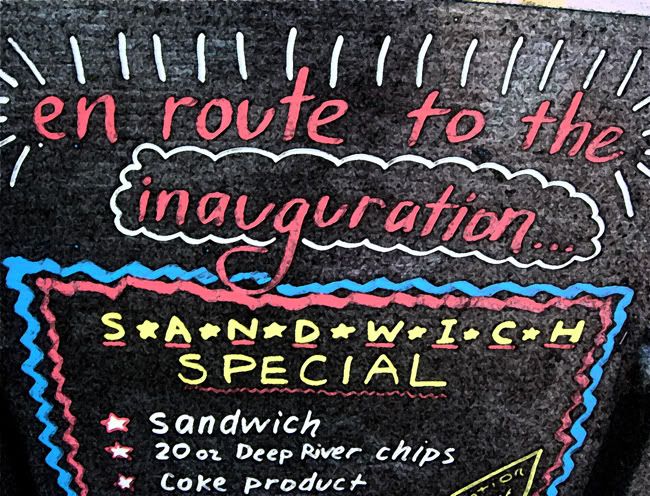 en route to the
inauguration...
S★A★N★D★W★I★C★H
SPECIAL
★ sandwich
★ 20 oz Deep River chips
★ Coke product